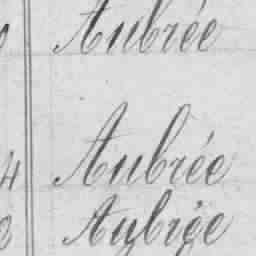 Aubrée
4 Aubrée
Aubrée